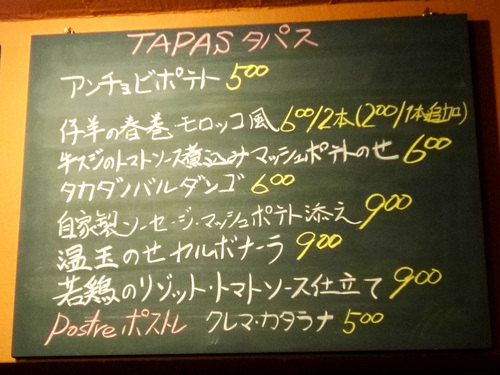 TAPAS タパス
アンチョビポテト 500
仔羊の春巻 モロッコ風 600/2本(200/1本追加)
牛スジのトマトソース煮込みマッシュポテトのせ 600
タカダンバルダンゴ 600
自家製ソーセージ・マッシュポテト添え 900
温玉のせカルボナーラ 900
若鶏のリゾット・トマトソース仕立て 900
Postre ポストレ クレマ・カタラナ 500